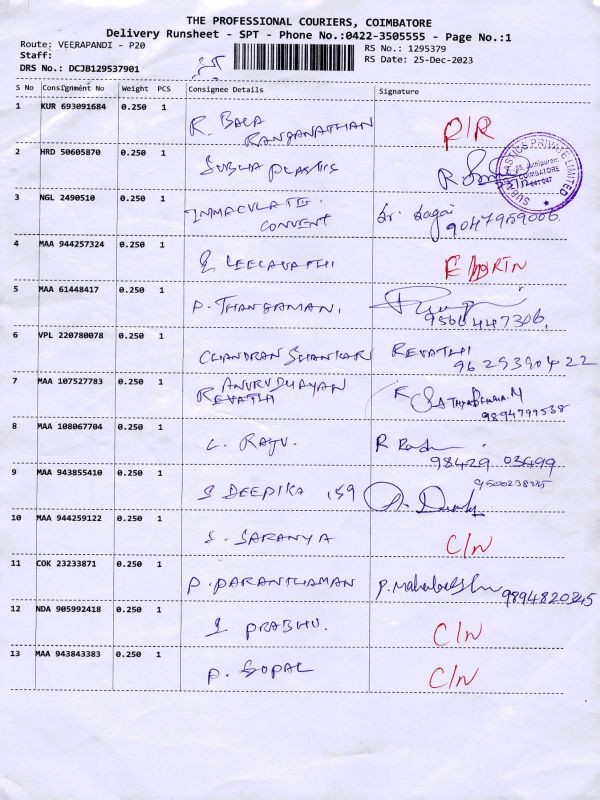 THE PROFESSIONAL COURIERS, COIMBATORE
Delivery Runsheet - SPT - Phone No.:0422-3505555 - Page No.:1
Route: VEERAPANDI - P20 RS No.: 1295379
Staff: RS Date: 25-Dec-2023
DRS No.: DCJB129537901
S No Consignment No Weight PCS Consignee Details Signature
1 KUR 693091684 0.250 1 R. BALA RANGANATHAN P/R
2 HRD 50605870 0.250 1 SUBHA PLASTICS R
COIMBATORE
PRIVATE LIMITED
3 NGL 2490510 0.250 1 IMMACULATE CONVENT Sr. Sagai 9047959006
4 MAA 944257324 0.250 1 LEELAVATHI
5 MAA 61448417 0.250 1 P. THANGAMANI. 9566447306.
6 VPL 220780078 0.250 1 CHANDRAN SHANKARI REVATHI 9629390422
7 MAA 107527783 0.250 1 ANURUDHAYAN REVATHI 9894799538
8 MAA 108067704 0.250 1 C. RAJU. R 98429 03499
9 MAA 943855410 0.250 1 S DEEPIKA 159
10 MAA 944259122 0.250 1 S. SARANYA C/N
11 COK 23233871 0.250 1 P. PARANTHAMAN 9894820345
12 NDA 905992418 0.250 1 S PRABHU. C/N
13 MAA 943843383 0.250 1 P. GOPAL C/N